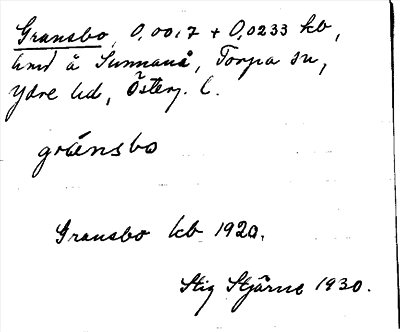 Gransbo, 0,0017 + 0,0233 kb,
hmd å Sunnanå, Torpa sn,
Ydre hd, Österg. l.
gránsbo
Gransbo kb 1920.
Stig Stjärne 1930.